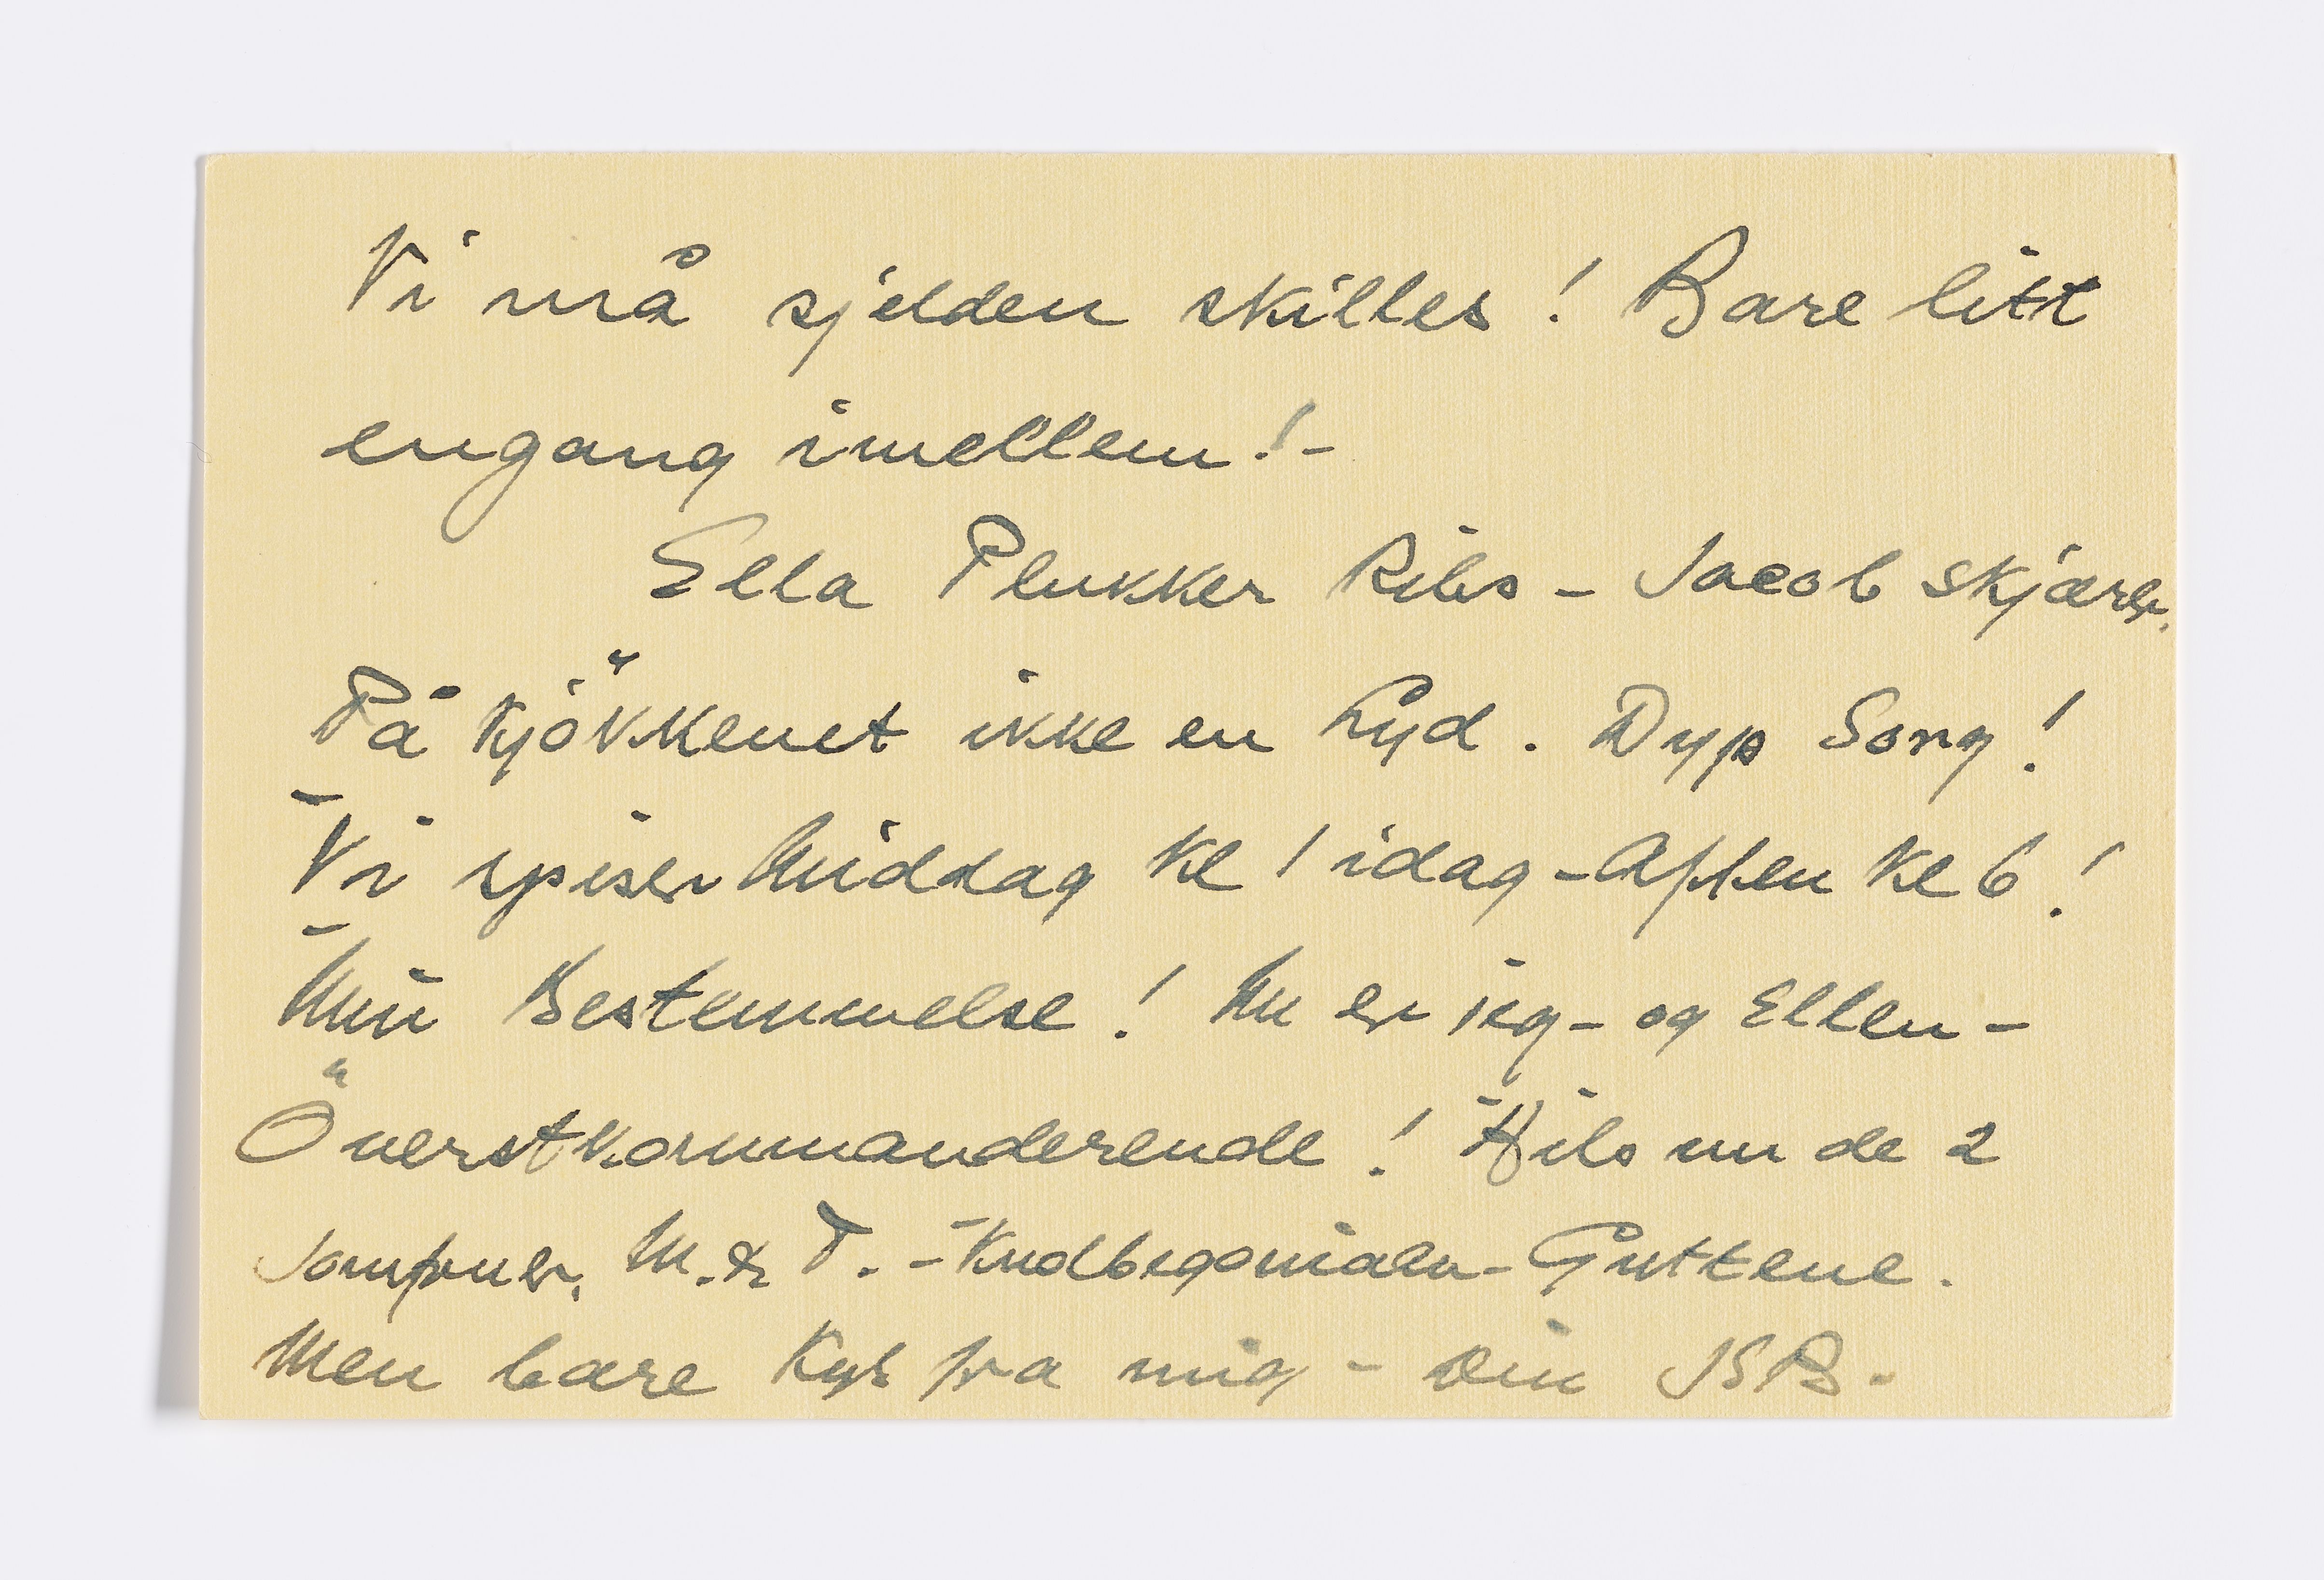 Vi må sjelden skilles! Bare litt
engang imellem!-
Ella Plukker Ribs - Jacob skjærer.
På Kjökkenet ikke en Lyd. Dyp Sorg!
Vi spiser Middag Kl 1 idag - Aften Kl 6!
Min Bestemmelse! Nu er jeg - og Ellen -
Överstkommanderende! Hils nu de 2
Jomfruer, M. & T. - Knolbegoniaen - Guttene.
Men bare Kys fra mig - Din JSB.